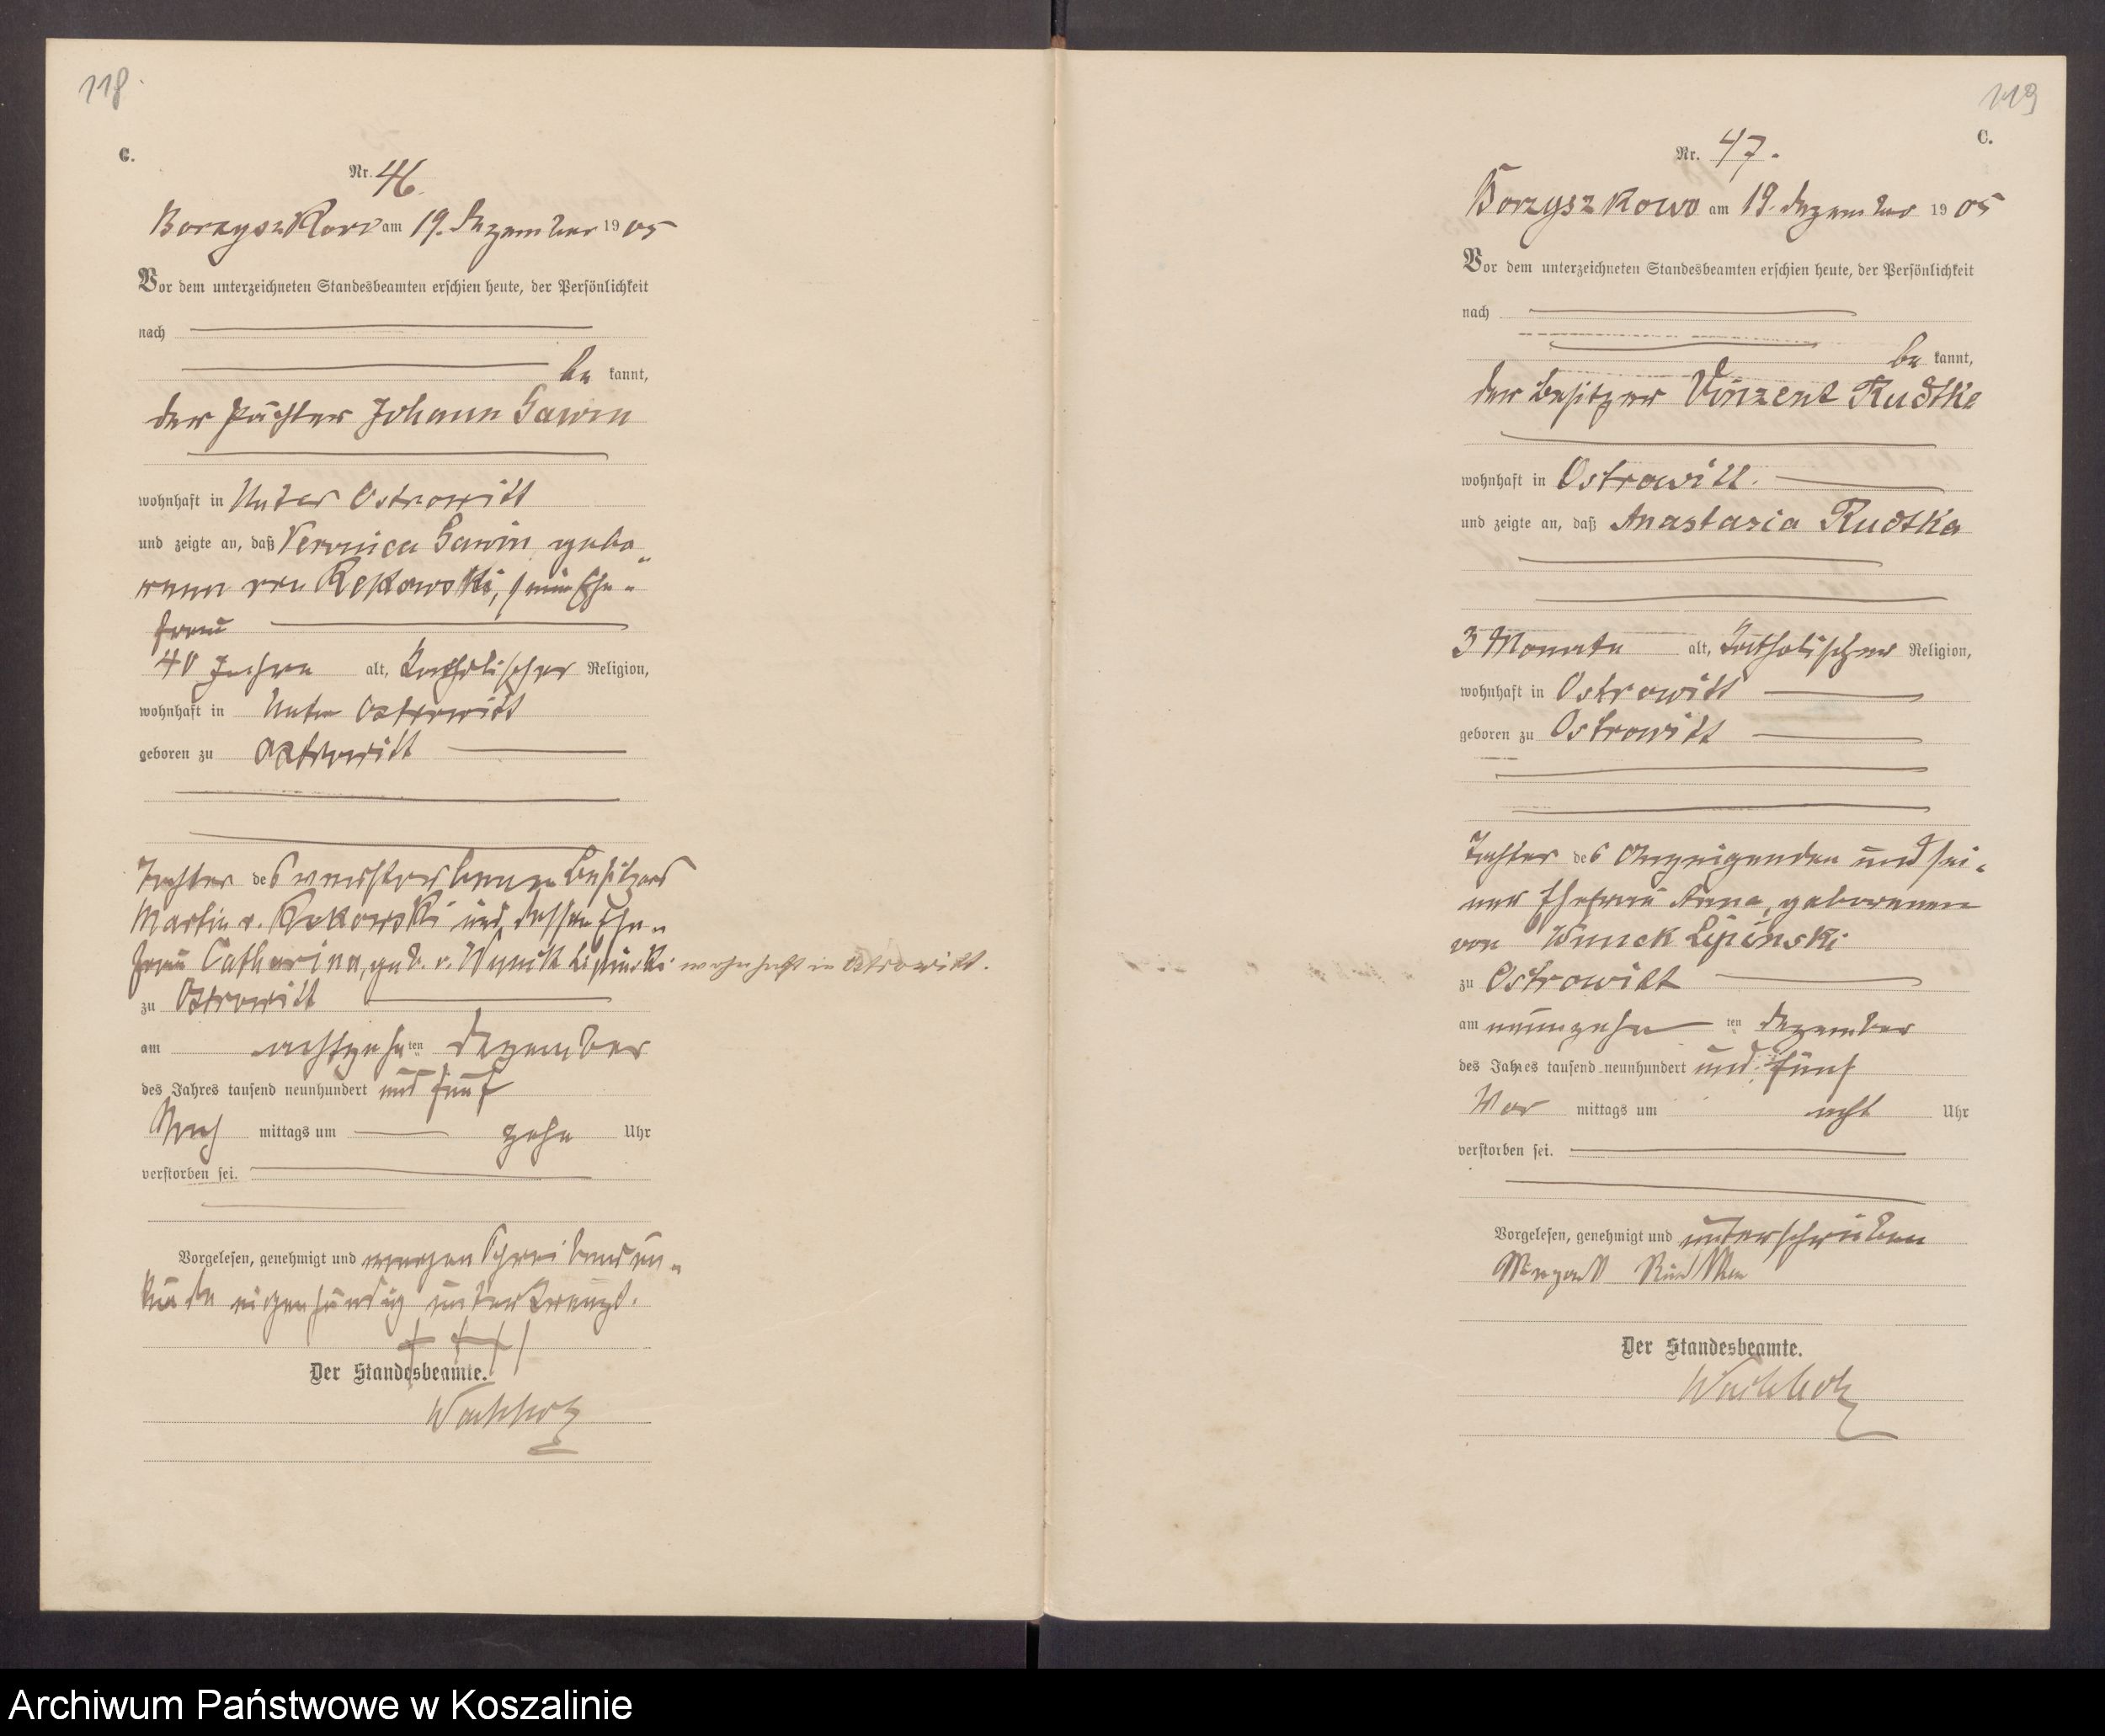 118.
C.
Nr. 46.
Borzyszkowo am 19. Dezember 1905
Vor dem unterzeichneten Standesbeamten erschien heute, der Persönlichkeit
nach
be kannt,
der Pächter Johann Gawin
wohnhaft in Unter Ostrowitt
und zeigte an, daß Veronica Gawin gebo„
renen von Rekowski, seine Ehe„
frau
40 Jahre alt, katholischer Religion,
wohnhaft in Unter Ostrowitt
geboren zu Ostrowitt
Tochter des verstorbenen Besitzers
Martin v. Rekowski und dessen Ehe„
frau Catharina, geb. v. Wnuck Lipinski wohnhaft in Ostrowitt.
zu Ostrowitt
am achtzehnten Dezember
des Jahres tausend neunhundert und fünf
Nach mittags um zehn Uhr
verstorben sei.
Vorgelesen, genehmigt und wegen Schreibensun„
kunde eigenhändig unterkreuzt.
+ + +
Der Standesbeamte.
Wachholz
119
C.
Nr. 47.
Borzyszkowo am 19. Dezember 1905
Vor dem unterzeichneten Standesbeamten erschien heute, der Persönlichkeit
nach
be kannt,
der Besitzer Vinzent Rudtke
wohnhaft in Ostrowitt.
und zeigte an, daß Anastasia Rudtka
3 Monate alt, katholischer Religion,
wohnhaft in Ostrowitt
geboren zu Ostrowitt
Tochter des Anzeigenden und sei„
ner Ehefrau Anna, geborenen
von Wnuck Lipinski
zu Ostrowitt
am neunzehnten Dezember
des Jahres tausend neunhundert und fünf
Vor mittags um acht Uhr
verstorben sei.
Vorgelesen, genehmigt und unterschrieben
Der Standesbeamte.
Wachholz
Archiwum Państwowe w Koszalinie